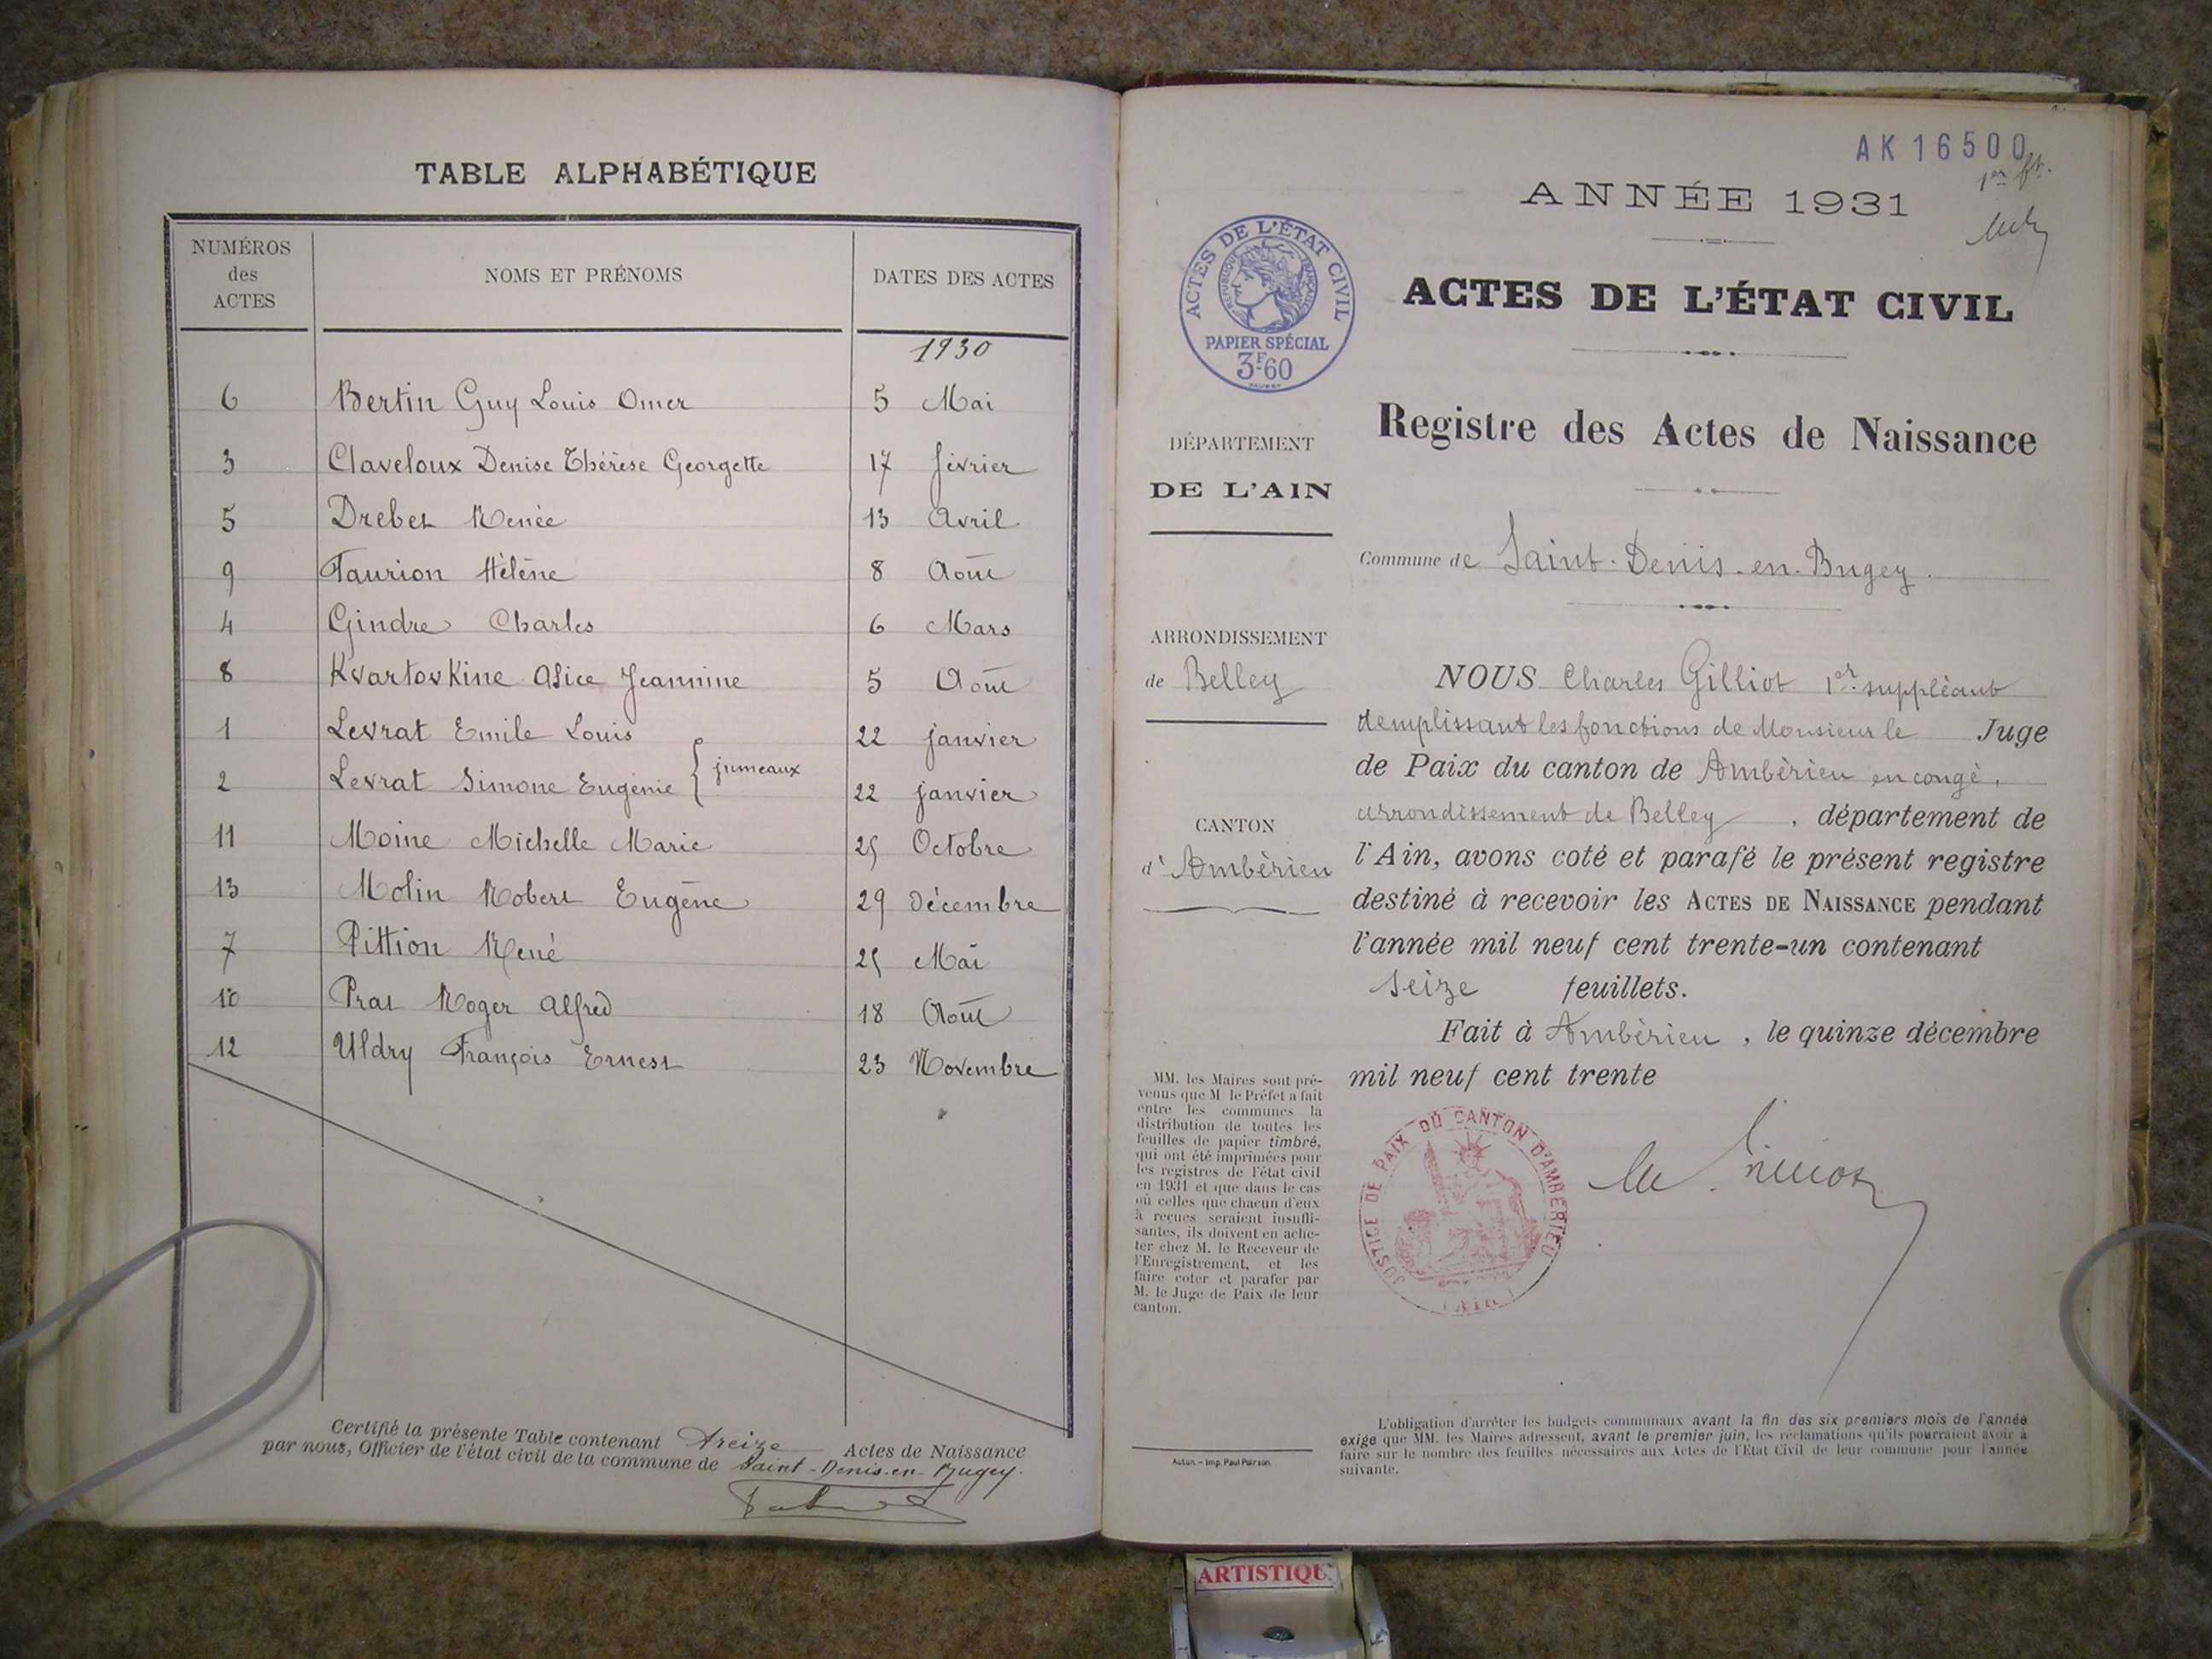 TABLE ALPHABÉTIQUE
NUMÉROS des ACTES
NOMS ET PRÉNOMS
DATES DES ACTES
1930
6 Bertin Guy Louis Omer 5 Mai
3 Claveloux Denise Thérèse Georgette 17 février
5 Drebet Renée 13 Avril
9 Faurion Hélène 8 Août
4 Gindre Charles 6 Mars
8 Kvartovkine Alice Jeannine 5 Août
1 Levrat Emile Louis 22 janvier
jumeaux
2 Levrat Simone Eugénie 22 janvier
11 Moine Michelle Marie 25 Octobre
13 Molin Robert Eugène 29 Décembre
7 Pittion René 25 Mai
10 Prat Roger Alfred 18 Août
12 Uldry François Ernest 23 Novembre
Certifié la présente Table contenant Treize Actes de Naissance
par nous, Officier de l'état civil de la commune de Saint-Denis-en-Bugey.
AK 16500
1er ft.
ANNÉE 1931
ACTES DE L'ÉTAT CIVIL
RÉPUBLIQUE FRANÇAISE
PAPIER SPÉCIAL
3F60
ACTES DE L'ÉTAT CIVIL
Registre des Actes de Naissance
DÉPARTEMENT
DE L'AIN
Commune de Saint-Denis-en-Bugey.
ARRONDISSEMENT
de Belley
CANTON
d'Ambérieu
NOUS Charles Gilliot 1er suppléant
remplissant les fonctions de Monsieur le Juge
de Paix du canton de Ambérieu en congé,
arrondissement de Belley, département de
l'Ain, avons coté et parafé le présent registre
destiné à recevoir les ACTES DE NAISSANCE pendant
l'année mil neuf cent trente-un contenant
seize feuillets.
Fait à Ambérieu, le quinze décembre
mil neuf cent trente
MM. les Maires sont pré-
venus que M le Préfet a fait
entre les communes la
distribution de toutes les
feuilles de papier timbré,
qui ont été imprimées pour
les registres de l'état civil
en 1931 et que dans le cas
où celles que chacun d'eux
à reçues seraient insuffi-
santes, ils doivent en ache-
ter chez M. le Receveur de
l'Enregistrement, et les
faire coter et parafer par
M. le Juge de Paix de leur
canton.
JUSTICE DE PAIX DU CANTON D'AMBÉRIEU
(AIN)
L'obligation d'arrêter les budgets communaux avant la fin des six premiers mois de l'année
exige que MM. les Maires adressent, avant le premier juin, les réclamations qu'ils pourraient avoir à
faire sur le nombre des feuilles nécessaires aux Actes de l'Etat Civil de leur commune pour l'année
suivante.
Autun. – Imp. Paul Poirson.
ARTISTIQU